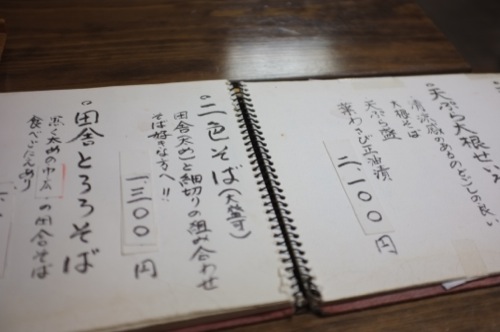 天ぷら大根せいろ
清涼感のあるのどごしの良い
大根そば
天ぷら盛
葉わさび正油漬
二、一〇〇円
二色そば(大盛可)
田舎(太め)と細切りの組み合わせ
そば好きな方へ!!
一三〇〇円
田舎とろろそば
黒く太めの
の田舎そば
食べごたえあり